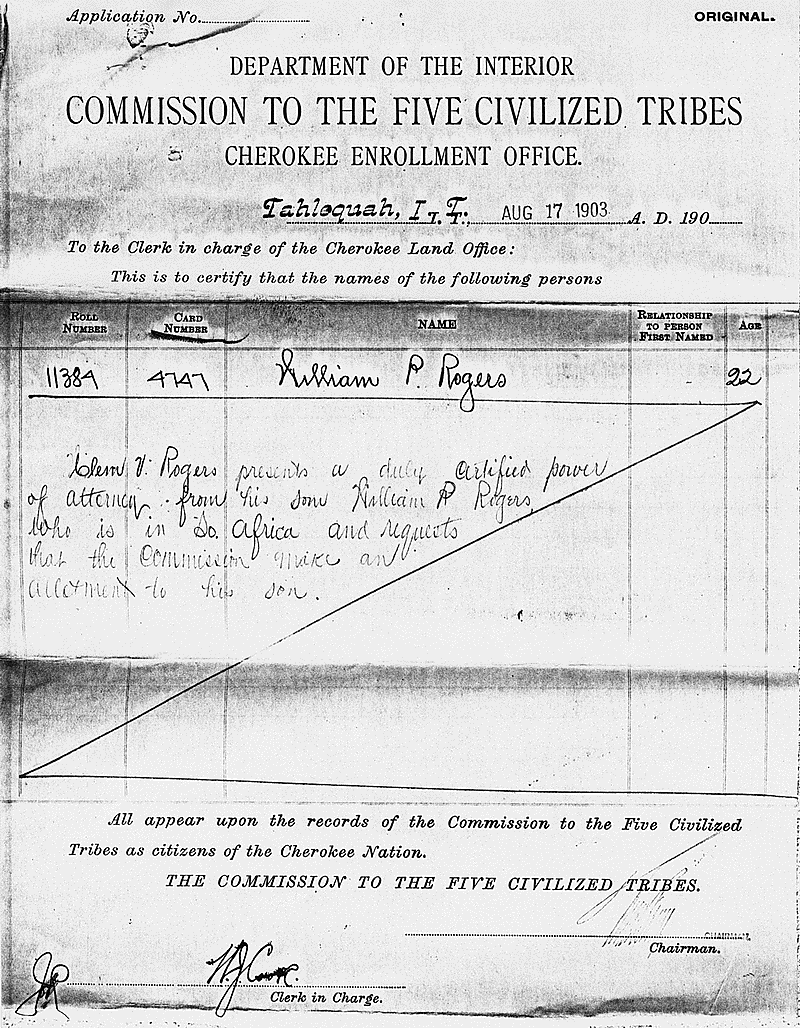 Application No.
ORIGINAL.
DEPARTMENT OF THE INTERIOR
COMMISSION TO THE FIVE CIVILIZED TRIBES
CHEROKEE ENROLLMENT OFFICE.
Tahlequah, I. T., AUG 17 1903 A. D. 190
To the Clerk in charge of the Cherokee Land Office:
This is to certify that the names of the following persons
ROLL NUMBER CARD NUMBER NAME RELATIONSHIP TO PERSON FIRST NAMED AGE
11384 4747 William P. Rogers 22
Clem V. Rogers presents a duly certified power
of attorney from his son William P Rogers
who is in So. Africa and requests
that the Commission make an
allotment to his son.
All appear upon the records of the Commission to the Five Civilized
Tribes as citizens of the Cherokee Nation.
THE COMMISSION TO THE FIVE CIVILIZED TRIBES.
CHAIRMAN.
Chairman.
Clerk in Charge.